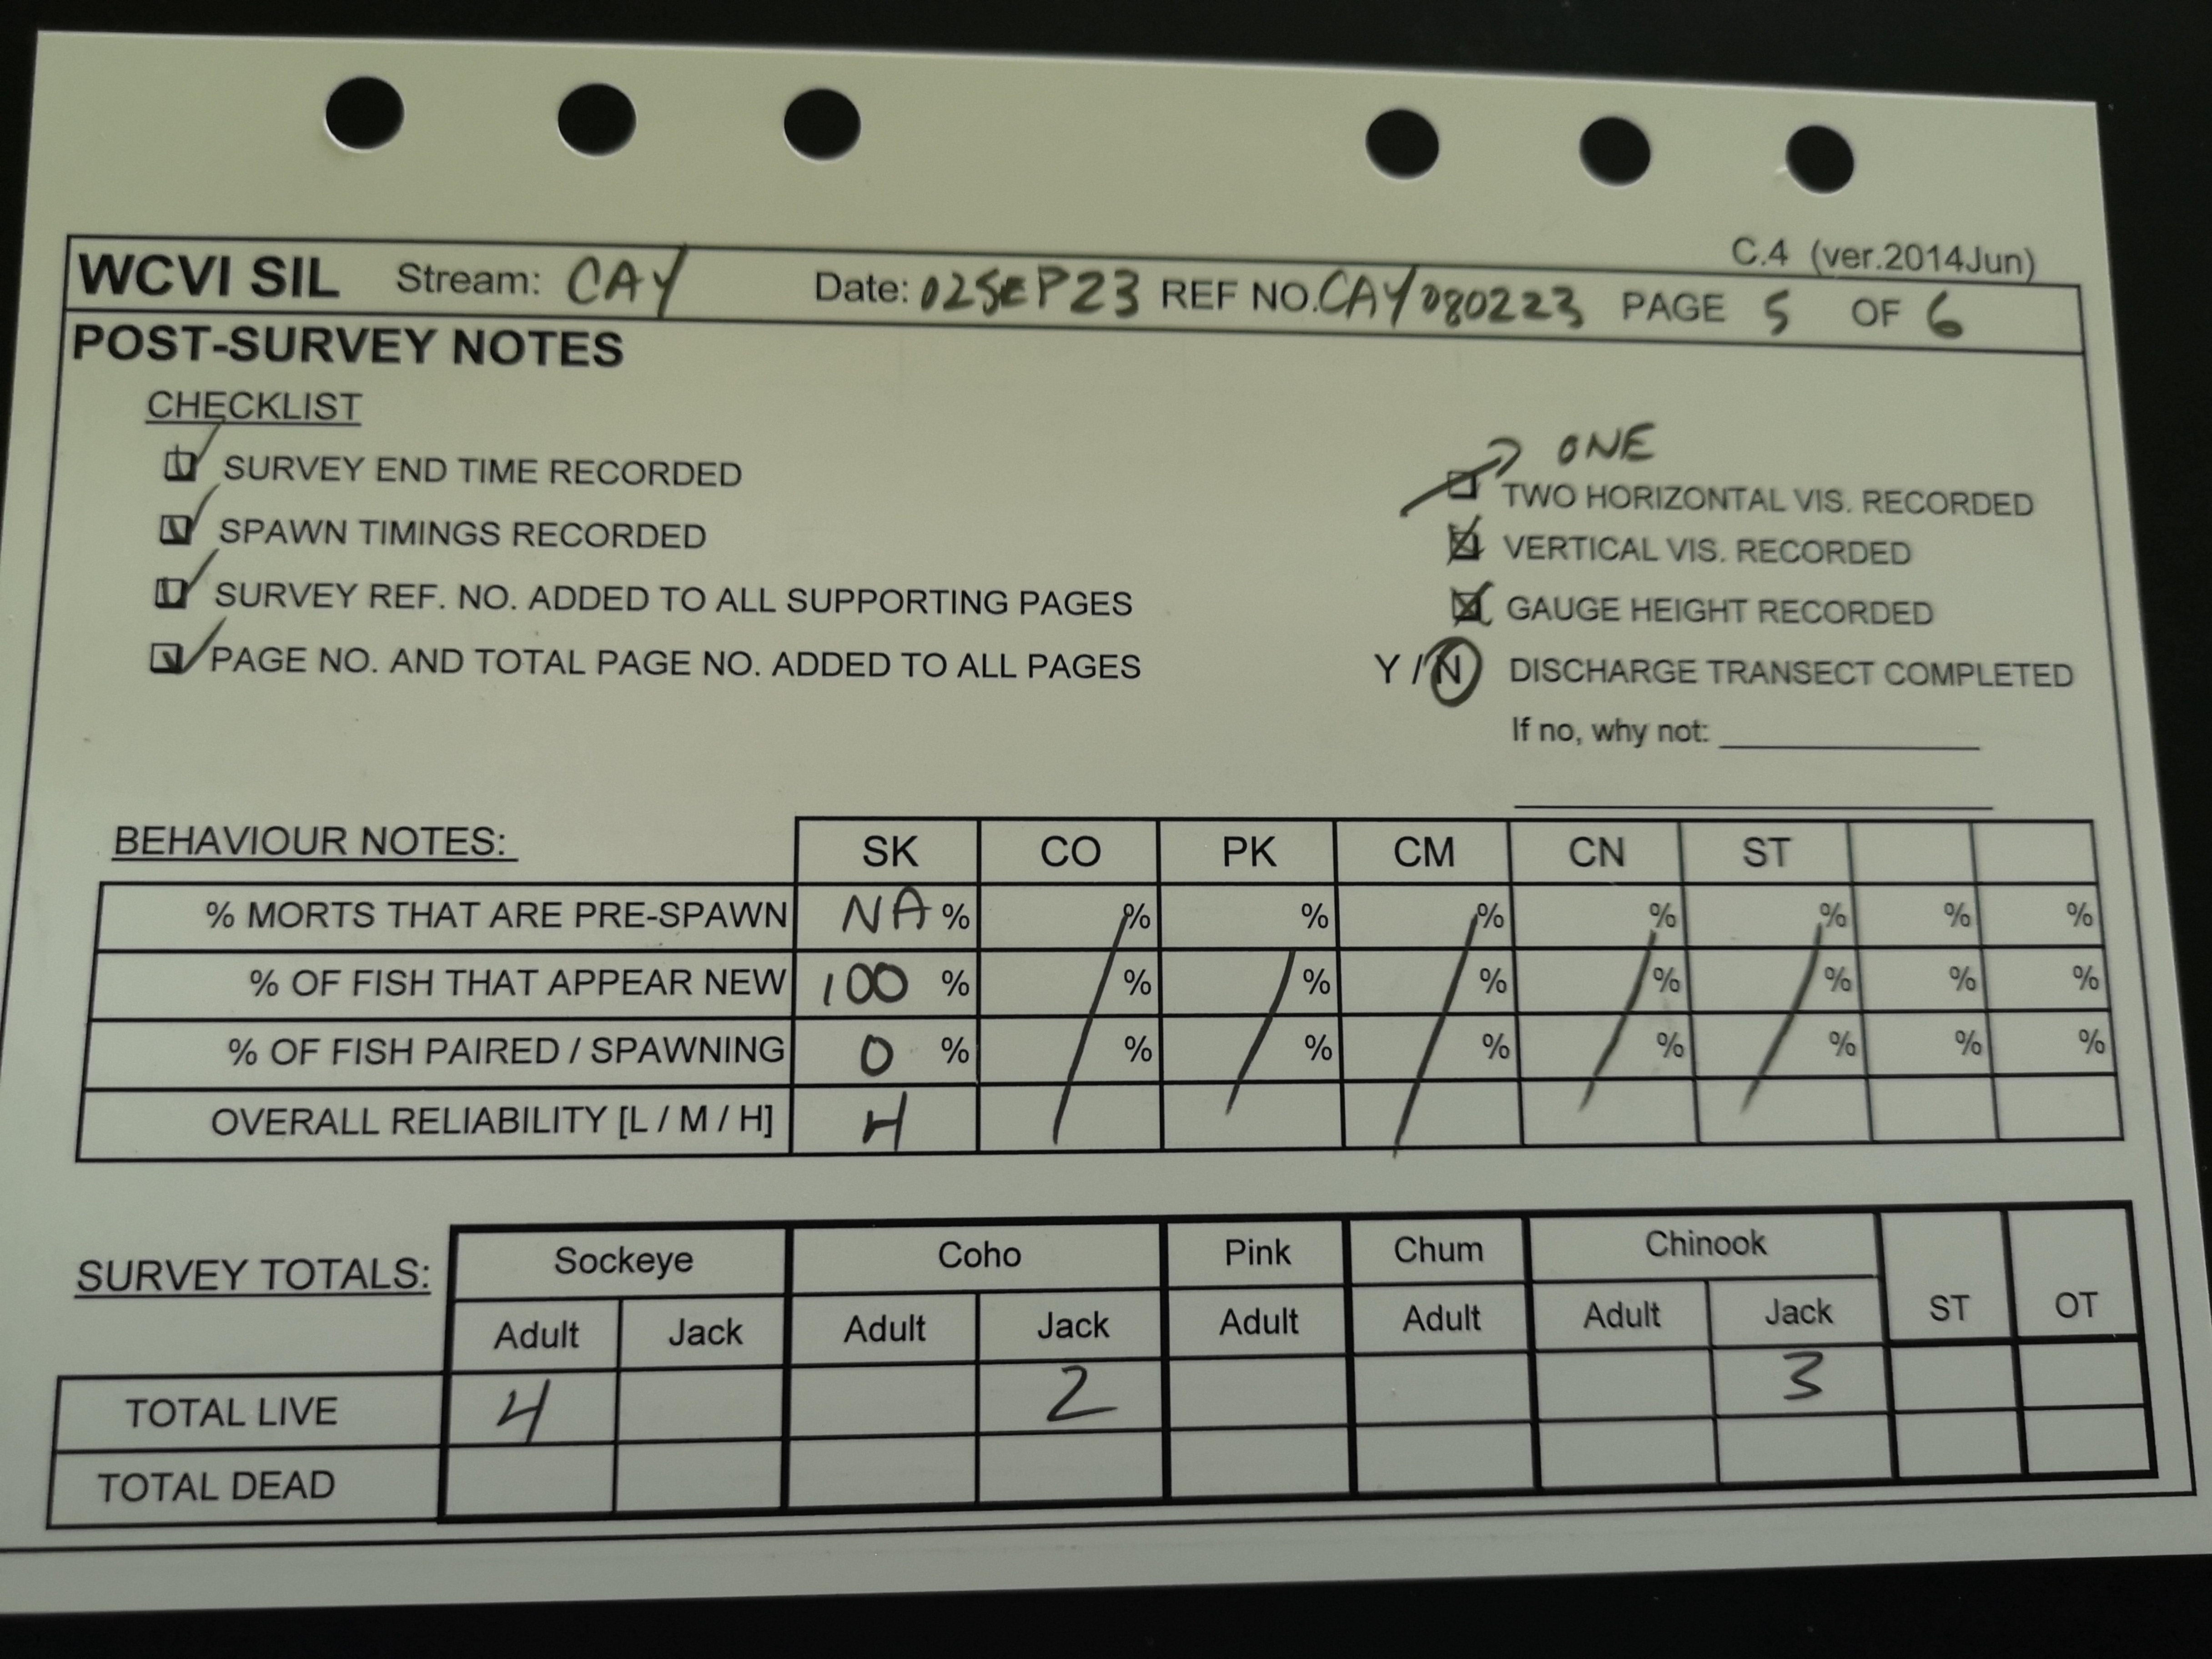 C.4 (ver.2014Jun)
WCVI SIL Stream: CAY Date: 02SEP23 REF NO. CAY080223 PAGE 5 OF 6
POST-SURVEY NOTES
CHECKLIST
SURVEY END TIME RECORDED
SPAWN TIMINGS RECORDED
SURVEY REF. NO. ADDED TO ALL SUPPORTING PAGES
PAGE NO. AND TOTAL PAGE NO. ADDED TO ALL PAGES
ONE
TWO HORIZONTAL VIS. RECORDED
VERTICAL VIS. RECORDED
GAUGE HEIGHT RECORDED
Y / N DISCHARGE TRANSECT COMPLETED
If no, why not:
BEHAVIOUR NOTES: SK CO PK CM CN ST
% MORTS THAT ARE PRE-SPAWN NA % % % % % % % %
% OF FISH THAT APPEAR NEW 100 % % % % % % % %
% OF FISH PAIRED / SPAWNING 0 % % % % % % % %
OVERALL RELIABILITY [L / M / H] H
SURVEY TOTALS: Sockeye Coho Pink Chum Chinook ST OT
Adult Jack Adult Jack Adult Adult Adult Jack
TOTAL LIVE 4 2 3
TOTAL DEAD